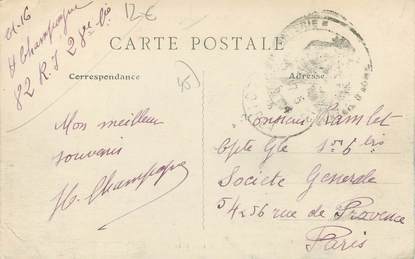 H Champagne
82 R. I 28ᵉ Cie
12€
CARTE POSTALE
Correspondance
Adresse
Mon meilleur
souvenir
H. Champagne
Monsieur Ramlet
Cpte Gle
Societe Generale
54 & 56 rue de Provence
Paris